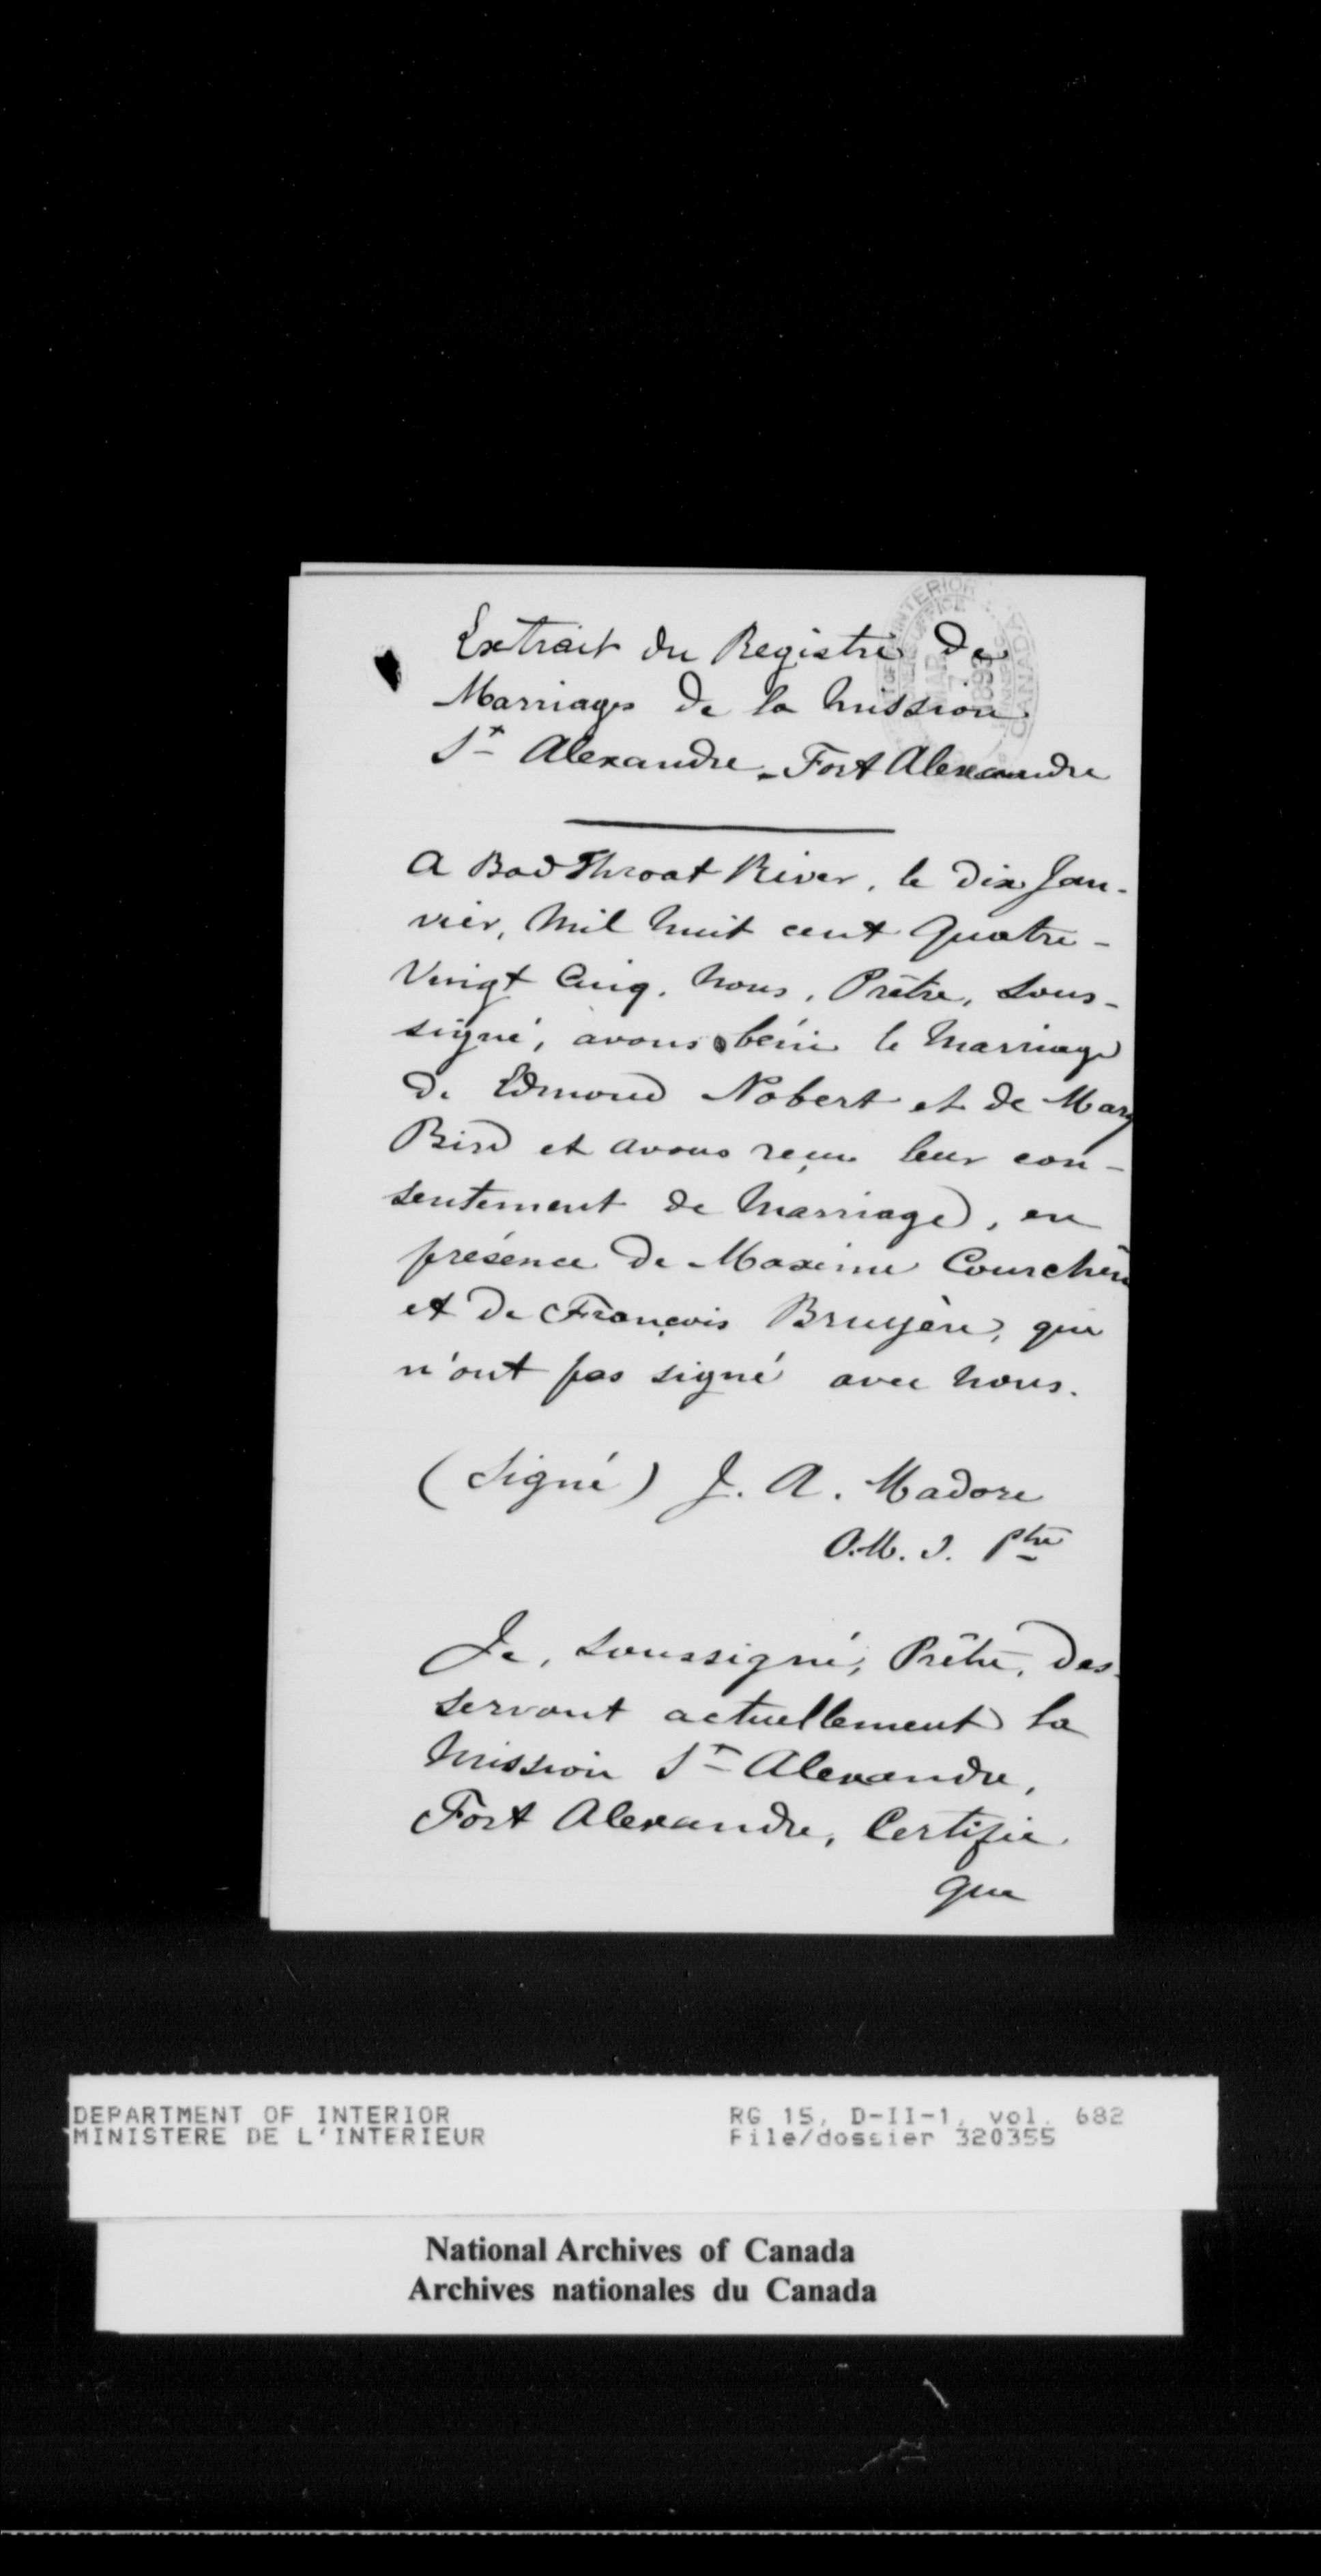 Extrait du Registre de
Marriages de la Mission
St Alexandre - Fort Alexandre
A Bad Throat River, le dix Jan-
vier, Mil huit cent quatre-
Vingt Cinq, nous, Prêtre, sous-
signé, avons béni le Marriage
de Edmond Nobert et de Mary
Bird et avons reçu leur con-
sentement de Marriage, en
présence de Maxime Courchêne
et de François Bruyère, qui
n'ont pas signé avec nous.
(Signé) J. A. Madore
O.M.I. Ptre
Je, soussigné, Prêtre, des-
servant actuellement la
Mission St Alexandre,
Fort Alexandre, Certifie
que
INTERIOR
OFFICE
MAR
7
1893
WINNIPEG
CANADA
DEPARTMENT OF INTERIOR
MINISTERE DE L'INTERIEUR
RG 15, D-II-1, vol. 682
File/dossier 320355
National Archives of Canada
Archives nationales du Canada